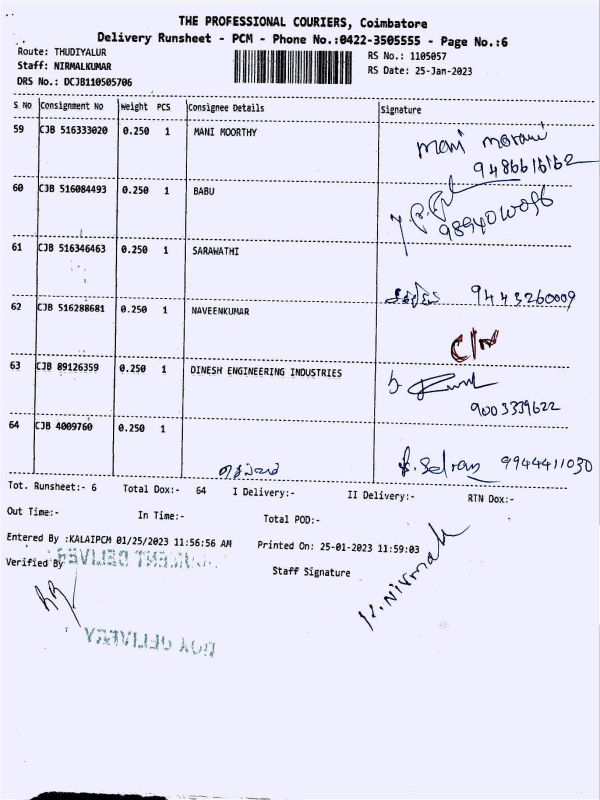 THE PROFESSIONAL COURIERS, Coimbatore
Delivery Runsheet - PCM - Phone No.:0422-3505555 - Page No.:6
Route: THUDIYALUR
RS No.: 1105057
Staff: NIRMALKUMAR
RS Date: 25-Jan-2023
DRS No.: DCJB110505706
S No Consignment No Weight PCS Consignee Details Signature
59 CJB 516333020 0.250 1 MANI MOORTHY
9486616162
60 CJB 516084493 0.250 1 BABU
61 CJB 516346463 0.250 1 SARAWATHI
9443260009
62 CJB 516288681 0.250 1 NAVEENKUMAR
63 CJB 89126359 0.250 1 DINESH ENGINEERING INDUSTRIES
9003339622
64 CJB 4009760 0.250 1
9944411030
Tot. Runsheet:- 6 Total Dox:- 64 I Delivery:- II Delivery:- RTN Dox:-
Out Time:- In Time:- Total POD:-
Entered By :KALAIPCM 01/25/2023 11:56:56 AM Printed On: 25-01-2023 11:59:03
Verified By Staff Signature
N. Nirmal